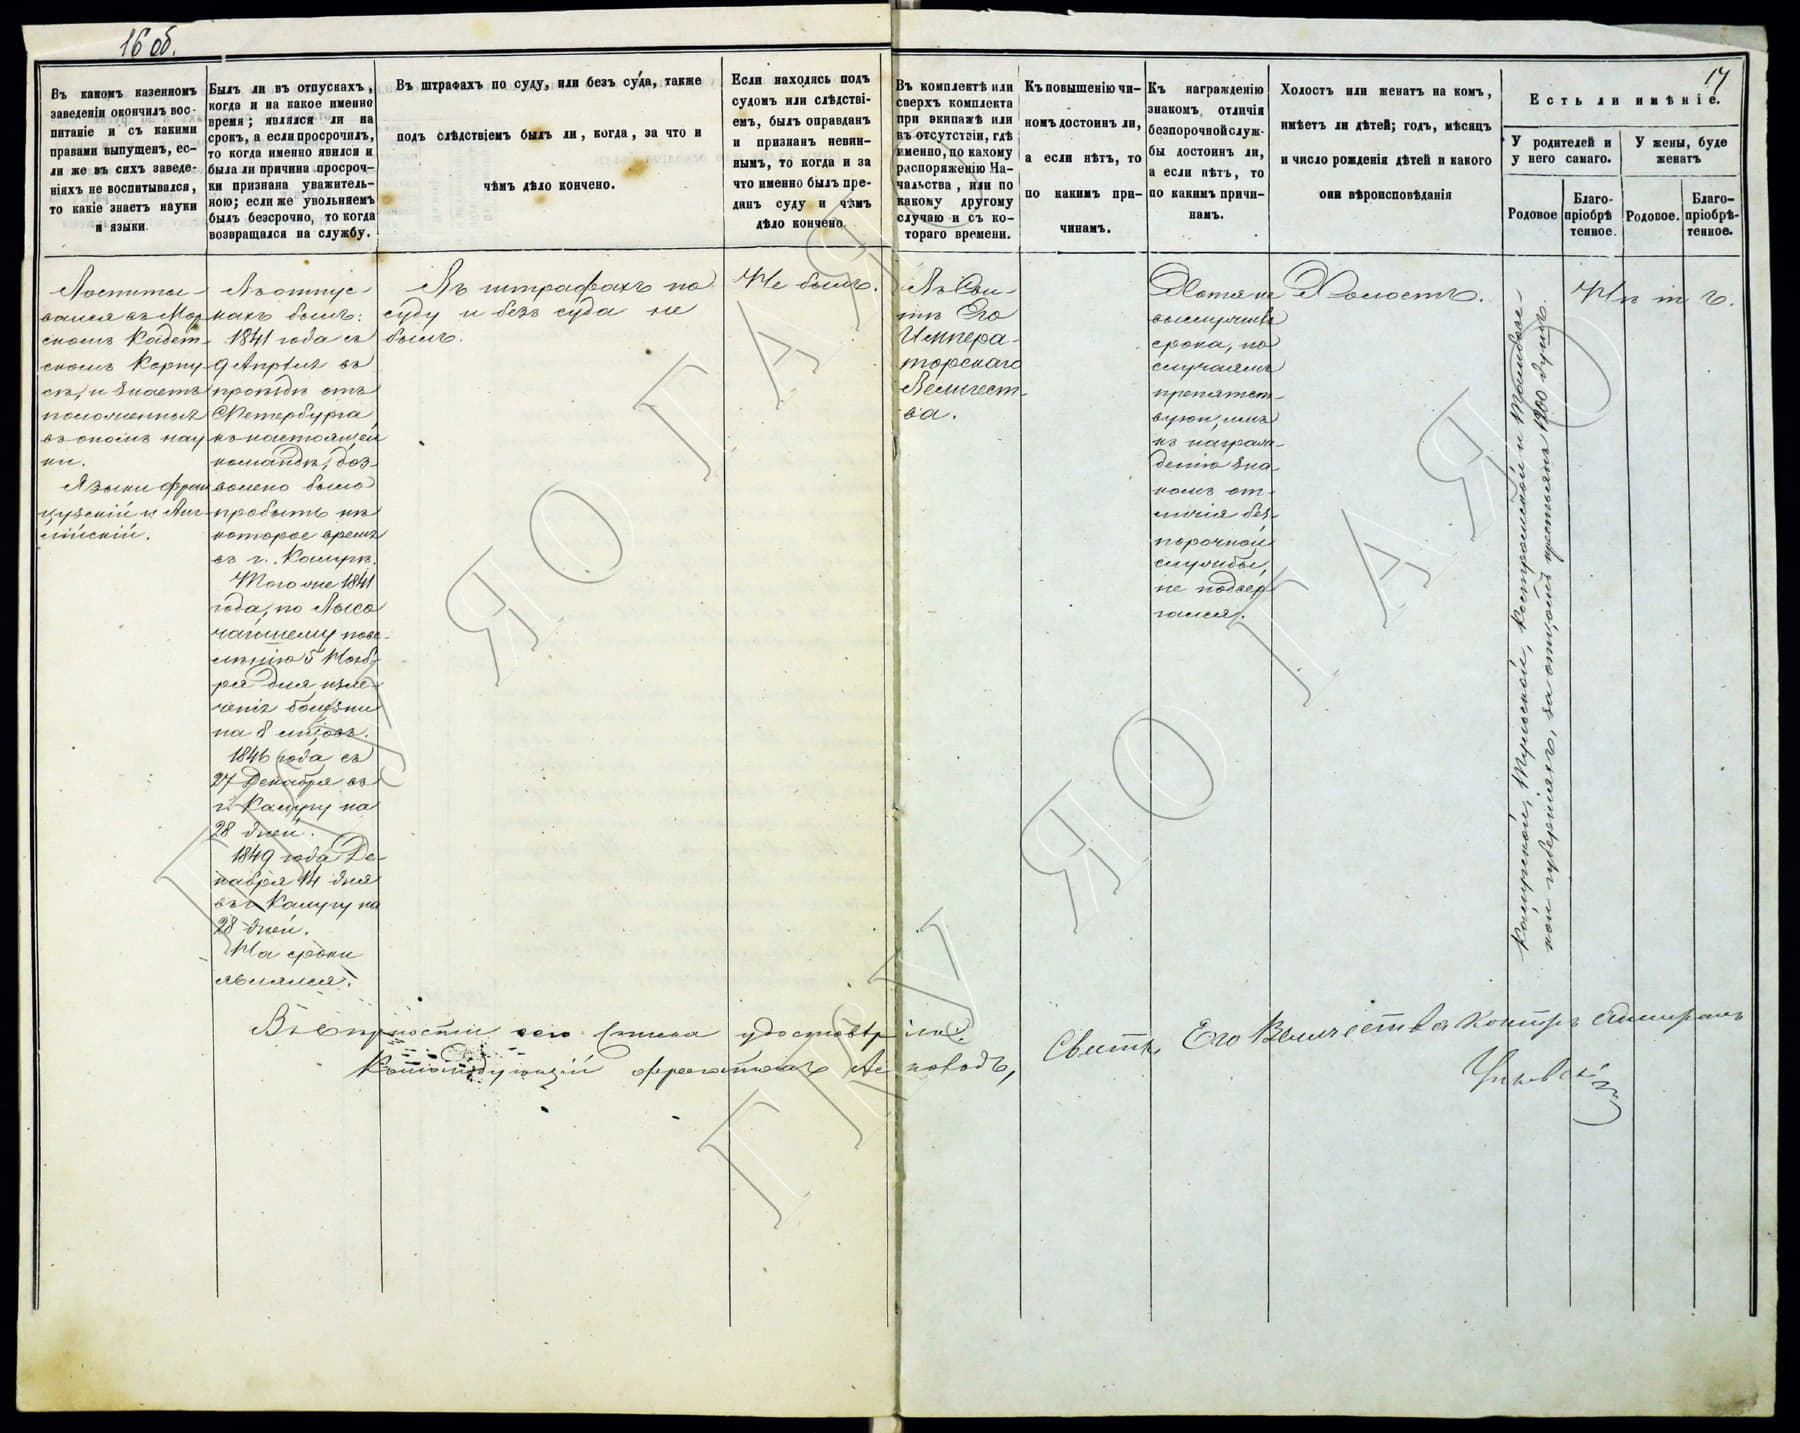 16 об.
17
Въ какомъ казенномъ
заведеніи окончилъ вос-
питаніе и съ какими
правами выпущенъ, ес-
ли же въ сихъ заведе-
ніяхъ не воспитывался,
то какіе знаетъ науки
и языки.
Былъ ли въ отпускахъ,
когда и на какое именно
время; являлся ли на
срокъ, а если просрочилъ,
то когда именно явился и
была ли причина просроч-
ки признана уважитель-
ною; если же увольняемъ
былъ безсрочно, то когда
возвращался на службу.
Въ штрафахъ по суду, или безъ суда, также
подъ слѣдствіемъ былъ ли, когда, за что и
чѣмъ дѣло кончено.
Если находясь подъ
судомъ или слѣдстві-
емъ, былъ оправданъ
и признанъ невин-
нымъ, то когда и за
что именно былъ пре-
данъ суду и чѣмъ
дѣло кончено.
Въ комплектѣ или
сверхъ комплекта
при экипажѣ или
въ отсутствіи, гдѣ
именно, по какому
распоряженію На-
чальства, или по
какому другому
случаю и съ ко-
тораго времени.
Къ повышенію чи-
номъ достоинъ ли,
а если нѣтъ, то
по какимъ при-
чинамъ.
Къ награжденію
знакомъ отличія
безпорочной служ-
бы достоинъ ли,
а если нѣтъ, то
по какимъ причи-
намъ.
Холостъ или женатъ на комъ,
имѣетъ ли дѣтей; годъ, мѣсяцъ
и число рожденія дѣтей и какого
они вѣроисповѣданія
Есть ли имѣніе.
У родителей и
у него самаго.
У жены, буде
женатъ
Родовое
Благо-
пріобрѣ
тенное.
Родовое.
Благо-
пріобрѣ-
тенное.
Воспиты-
вался въ Мор
скомъ Кадет-
скомъ Корпу
сѣ, и знаетъ
положенныя
въ ономъ нау
ки.
Языки фран
цузскій и Анг-
лійскій.
Въ отпус-
кахъ былъ:
1841 года съ
9 Апрѣля въ
проѣздъ отъ
С.Петербурга
къ настоящей
командѣ, доз-
волено было
пробыть нѣ
которое время
въ г. Калугѣ.
Того же 1841
года, по Высо
чайшему пове-
лѣнію 5 Нояб-
ря для излѣ-
ченія болѣзни
на 8 мѣсяц.
1846 года, съ
27 Декабря въ
г. Калугу на
28 дней.
1849 года Де-
кабря 14 дня
въ г. Калугу на
28 дней.
На сроки
являлся.
Въ штрафахъ по
суду и безъ суда не
былъ.
Не былъ.
Въ Сви-
тѣ Его
Императ
торскаго
Величест-
ва.
Хотя не
выслужилъ
срока, но
случаямъ
препятст-
вующимъ
къ награж-
денію зна-
комъ от-
личія без-
порочной
службы,
не подвер
гался.
Холостъ.
Калужской, Тульской, Костромской и Тамбовс-
кой губерніяхъ, за отцомъ крестьянъ 1200 душъ.
Нѣтъ.
Въ вѣрности сего списка удостовѣряю.
Командующій фрегатомъ Ас коль дъ, Свиты Его Величества Контръ Адмиралъ
Унковскій
ГКУ ЯО ГАЯО
ГКУ ЯО ГАЯО